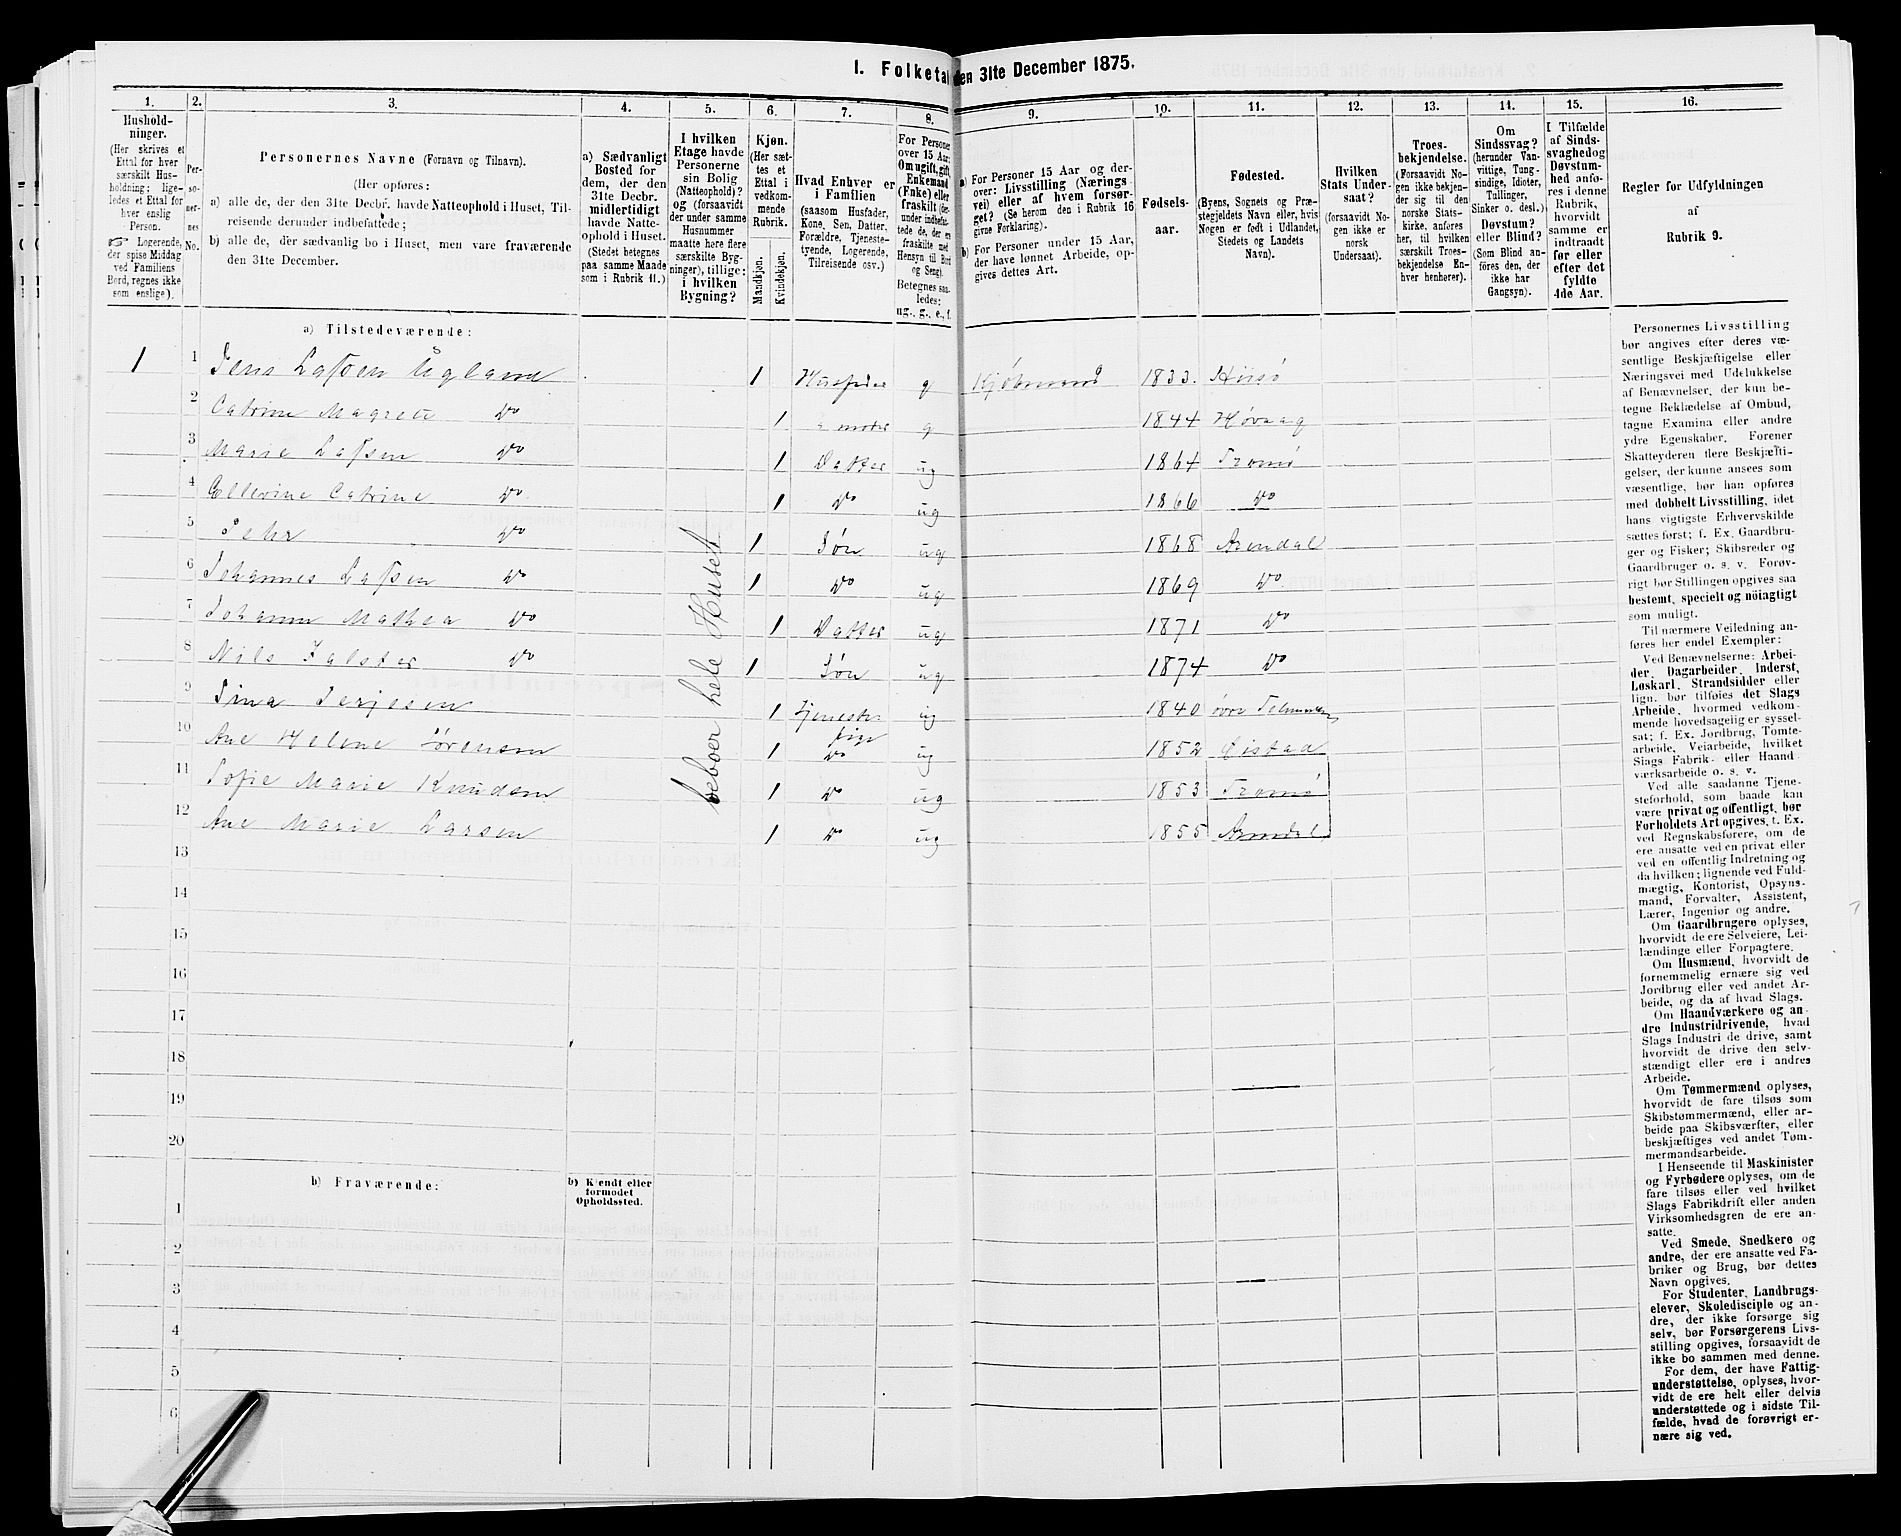 I. Folketal den 31te December 1875.
1. 2. 3. 4. 5. 6. 7. 8. 9. 10. 11. 12. 13. 14. 15. 16.
Hushold-
ninger.
(Her skrives et
Ettal for hver
særskilt Hus-
holdning; lige-
ledes et Ettal for
hver enslig
Person.
☞ Logerende,
der spise Middag
ved Familiens
Bord, regnes ikke
som enslige).
Per-
so-
ner-
nes
No.
Personernes Navne (Fornavn og Tilnavn).
(Her opføres:
a) alle de, der den 31te Decbr. havde Natteophold i Huset, Til-
reisende derunder indbefattede;
b) alle de, der sædvanlig bo i Huset, men vare fraværende
den 31te December.
a) Sædvanligt
Bosted for
dem, der den
31te Decbr.
midlertidigt
havde Natte-
ophold i Huset.
(Stedet betegnes
paa samme Maade
som i Rubrik 11.)
I hvilken
Etage havde
Personerne
sin Bolig
(Natteophold)?
og (forsaavidt
der under samme
Husnummer
maatte høre flere
særskilte Byg-
ninger), tillige:
i hvilken
Bygning?
Kjøn.
(Her sæt-
tes et
Ettal i
vedkom-
mende
Rubrik.
Mandkjøn.
Kvindekjøn.
Hvad Enhver er
i Familien
(saasom Husfader,
Kone, Søn, Datter,
Forældre, Tjeneste-
tyende, Logerende,
Tilreisende osv.)
For Personer
over 15 Aar:
Om ugift, gift,
Enkemand
(Enke) eller
fraskilt (der-
under indbefat-
tede de, der ere
fraskilte med
Hensyn til Bord
og Seng).
Betegnes saa-
ledes:
ug., g., e., f.
a) For Personer 15 Aar og der-
over: Livsstilling (Nærings-
vei) eller af hvem forsør-
get? (Se herom den i Rubrik 16
givne Forklaring).
b) For Personer under 15 Aar,
der have lønnet Arbeide, op-
gives dettes Art.
Fødsels-
aar.
Fødested.
(Byens, Sognets og Præ-
stegjeldets Navn eller, hvis
Nogen er født i Udlandet,
Stedets og Landets
Navn).
Hvilken
Stats Under-
saat?
(forsaavidt No-
gen ikke er
norsk
Undersaat).
Troes-
bekjendelse.
(Forsaavidt No-
gen ikke bekjen-
der sig til den
norske Stats-
kirke, anføres
her, til hvilken
særskilt Troes-
bekjendelse En-
hver henhører).
Om
Sindssvag?
(herunder Van-
vittige, Tung-
sindige, Idioter,
Tullinger,
Sinker o. desl.)
Døvstum?
eller Blind?
(Som Blind an-
føres den, der
ikke har
Gangsyn).
I Tilfælde
af Sinds-
svaghed og
Døvstum-
hed anfø-
res i denne
Rubrik,
hvorvidt
samme er
indtraadt
før eller
efter det
fyldte
4de Aar.
Regler for Udfyldningen
af
Rubrik 9.
a) Tilstedeværende:
1 1 Jens Lassen Ugland 1 Husfader g Kjøbmand 1833. Hisø
2 Catrine Magrete Do 1 moder g 1844 Høvaag
3 Marie Lassen Do 1 Datter ug 1864 Tromø
4 Ellevine Catrine Do 1 Do ug 1866 Do
5 Pehr Do 1 Søn ug 1868 Arendal
6 Johannes Lassen Do 1 Do ug 1869 Do
7 Johanne Mathea Do 1 Datter ug 1871 Do
8 Nils Falster Do 1 Søn ug 1874 Do
9 Tina Terjesen 1 tjeneste pige ug 1840 øvre Telemarken
10 Ane Helene Sørensen 1 Do ug 1852 Øistad
11 Sofie Marie Knudsen 1 Do ug 1853 Tromø
12 Ane Marie Larsen 1 Do ug 1855 Arendal
beboer hele Huset
13
14
15
16
17
18
19
20
b) Fraværende:
b) Kjendt eller
formodet
Opholdssted.
1
2
3
4
5
6
Personernes Livsstilling
bør angives efter deres væ-
sentlige Beskjæftigelse eller
Næringsvei med Udelukkelse
af Benævnelser, der kun be-
tegne Beklædelse af Ombud,
tagne Examina eller andre
ydre Egenskaber. Forener
Skatteyderen flere Beskjæfti-
gelser, der kunne ansees som
væsentlige, bør han opføres
med dobbelt Livsstilling, idet
hans vigtigste Erhvervskilde
sættes først; f. Ex. Gaardbru-
ger og Fisker; Skibsreder og
Gaardbruger o. s. v. Forøv-
rigt bør Stillingen opgives saa
bestemt, specielt og nöiagtigt
som muligt.
Til nærmere Veiledning an-
føres her endel Exempler:
Ved Benævnelserne: Arbei-
der, Dagarbeider, Inderst,
Løskarl, Strandsidder eller
lign. bør tilføies det Slags
Arbeide, hvormed vedkom-
mende hovedsagelig er syssel-
sat; f. Ex. Jordbrug, Tomte-
arbeide, Veiarbeide, hvilket
Slags Fabrik- eller Haand
værksarbeide o. s. v.
Ved alle saadanne Tjene-
steforhold, som baade kan
være privat og offentligt, bør
Forholdets Art opgives, t. Ex.
ved Regnskabsførere, om de
ere ansatte ved en privat eller
ved en offentlig Indretning og
da hvilken; lignende ved Fuld-
mægtig, Kontorist, Opsyns-
mand, Forvalter, Assistent,
Lærer, Ingeniør og andre.
Om Gaardbrugere oplyses,
hvorvidt de ere Selveiere, Lei-
lændinge eller Forpagtere.
Om Husmænd, hvorvidt de
fornemmelig ernære sig ved
Jordbrug eller ved andet Ar-
beide, og da af hvad Slags.
Om Haandværkere og an
dre Industridrivende, hvad
Slags Industri de drive, samt
hvorvidt de drive den selv-
stændigt eller ere i andres
Arbeide.
Om Tømmermænd oplyses,
hvorvidt de fare tilsøs som
Skibstømmermænd, eller ar-
beide paa Skibsværfter, eller
beskjæftiges ved andet Tøm-
mermandsarbeide.
I Henseende til Maskinister
og Fyrbødere oplyses, om de
fare tilsøs eller ved hvilket
Slags Fabrikdrift eller anden
Virksomhedsgren de ere an-
satte.
Ved Smede, Snedkere og
andre, der ere ansatte ved Fa-
briker og Brug, bør dettes
Navn opgives.
For Studenter, Landbrugs-
elever, Skoledisciple og an-
dre, der ikke forsørge sig
selv, bør Forsørgerens Livs-
stilling opgives, forsaavidt de
ikke bo sammen med denne.
For dem, der have Fattig-
understøttelse, oplyses, hvor-
vidt de ere helt eller delvis
understøttede og i sidste Til-
fælde, hvad de forøvrigt er-
nære sig ved.